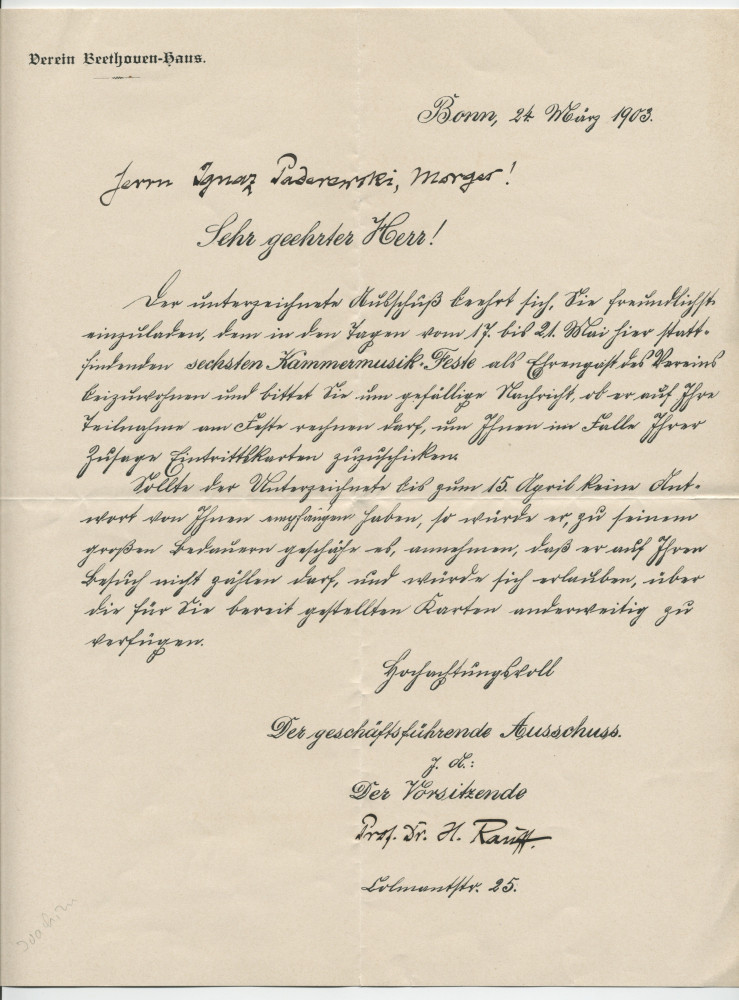 Verein Beethoven-Haus.
Bonn, 24. März 1903.
Herrn Ignaz Paderewski, Morges!
Sehr geehrter Herr!
Der unterzeichnete Ausschuß beehrt sich, Sie freundlichst
einzuladen, dem in den Tagen vom 17. bis 21. Mai hier statt-
findenden sechsten Kammermusik-Feste als Ehrengast des Vereins
beizuwohnen und bittet Sie um gefällige Nachricht, ob er auf Ihre
Teilnahme am Feste rechnen darf, um Ihnen im Falle Ihrer
Zusage Eintrittskarten zuzuschicken.
Sollte der Unterzeichnete bis zum 15. April keine Ant-
wort von Ihnen empfangen haben, so würde er, zu seinem
großen Bedauern geschähe es, annehmen, daß er auf Ihren
Besuch nicht zählen darf, und würde sich erlauben, über
die für Sie bereit gestellten Karten anderweitig zu
verfügen.
Hochachtungsvoll
Der geschäftsführende Ausschuss.
J. A.:
Der Vorsitzende
Prof. Dr. H. Rauff.
Colmantstr. 25.
Joachim